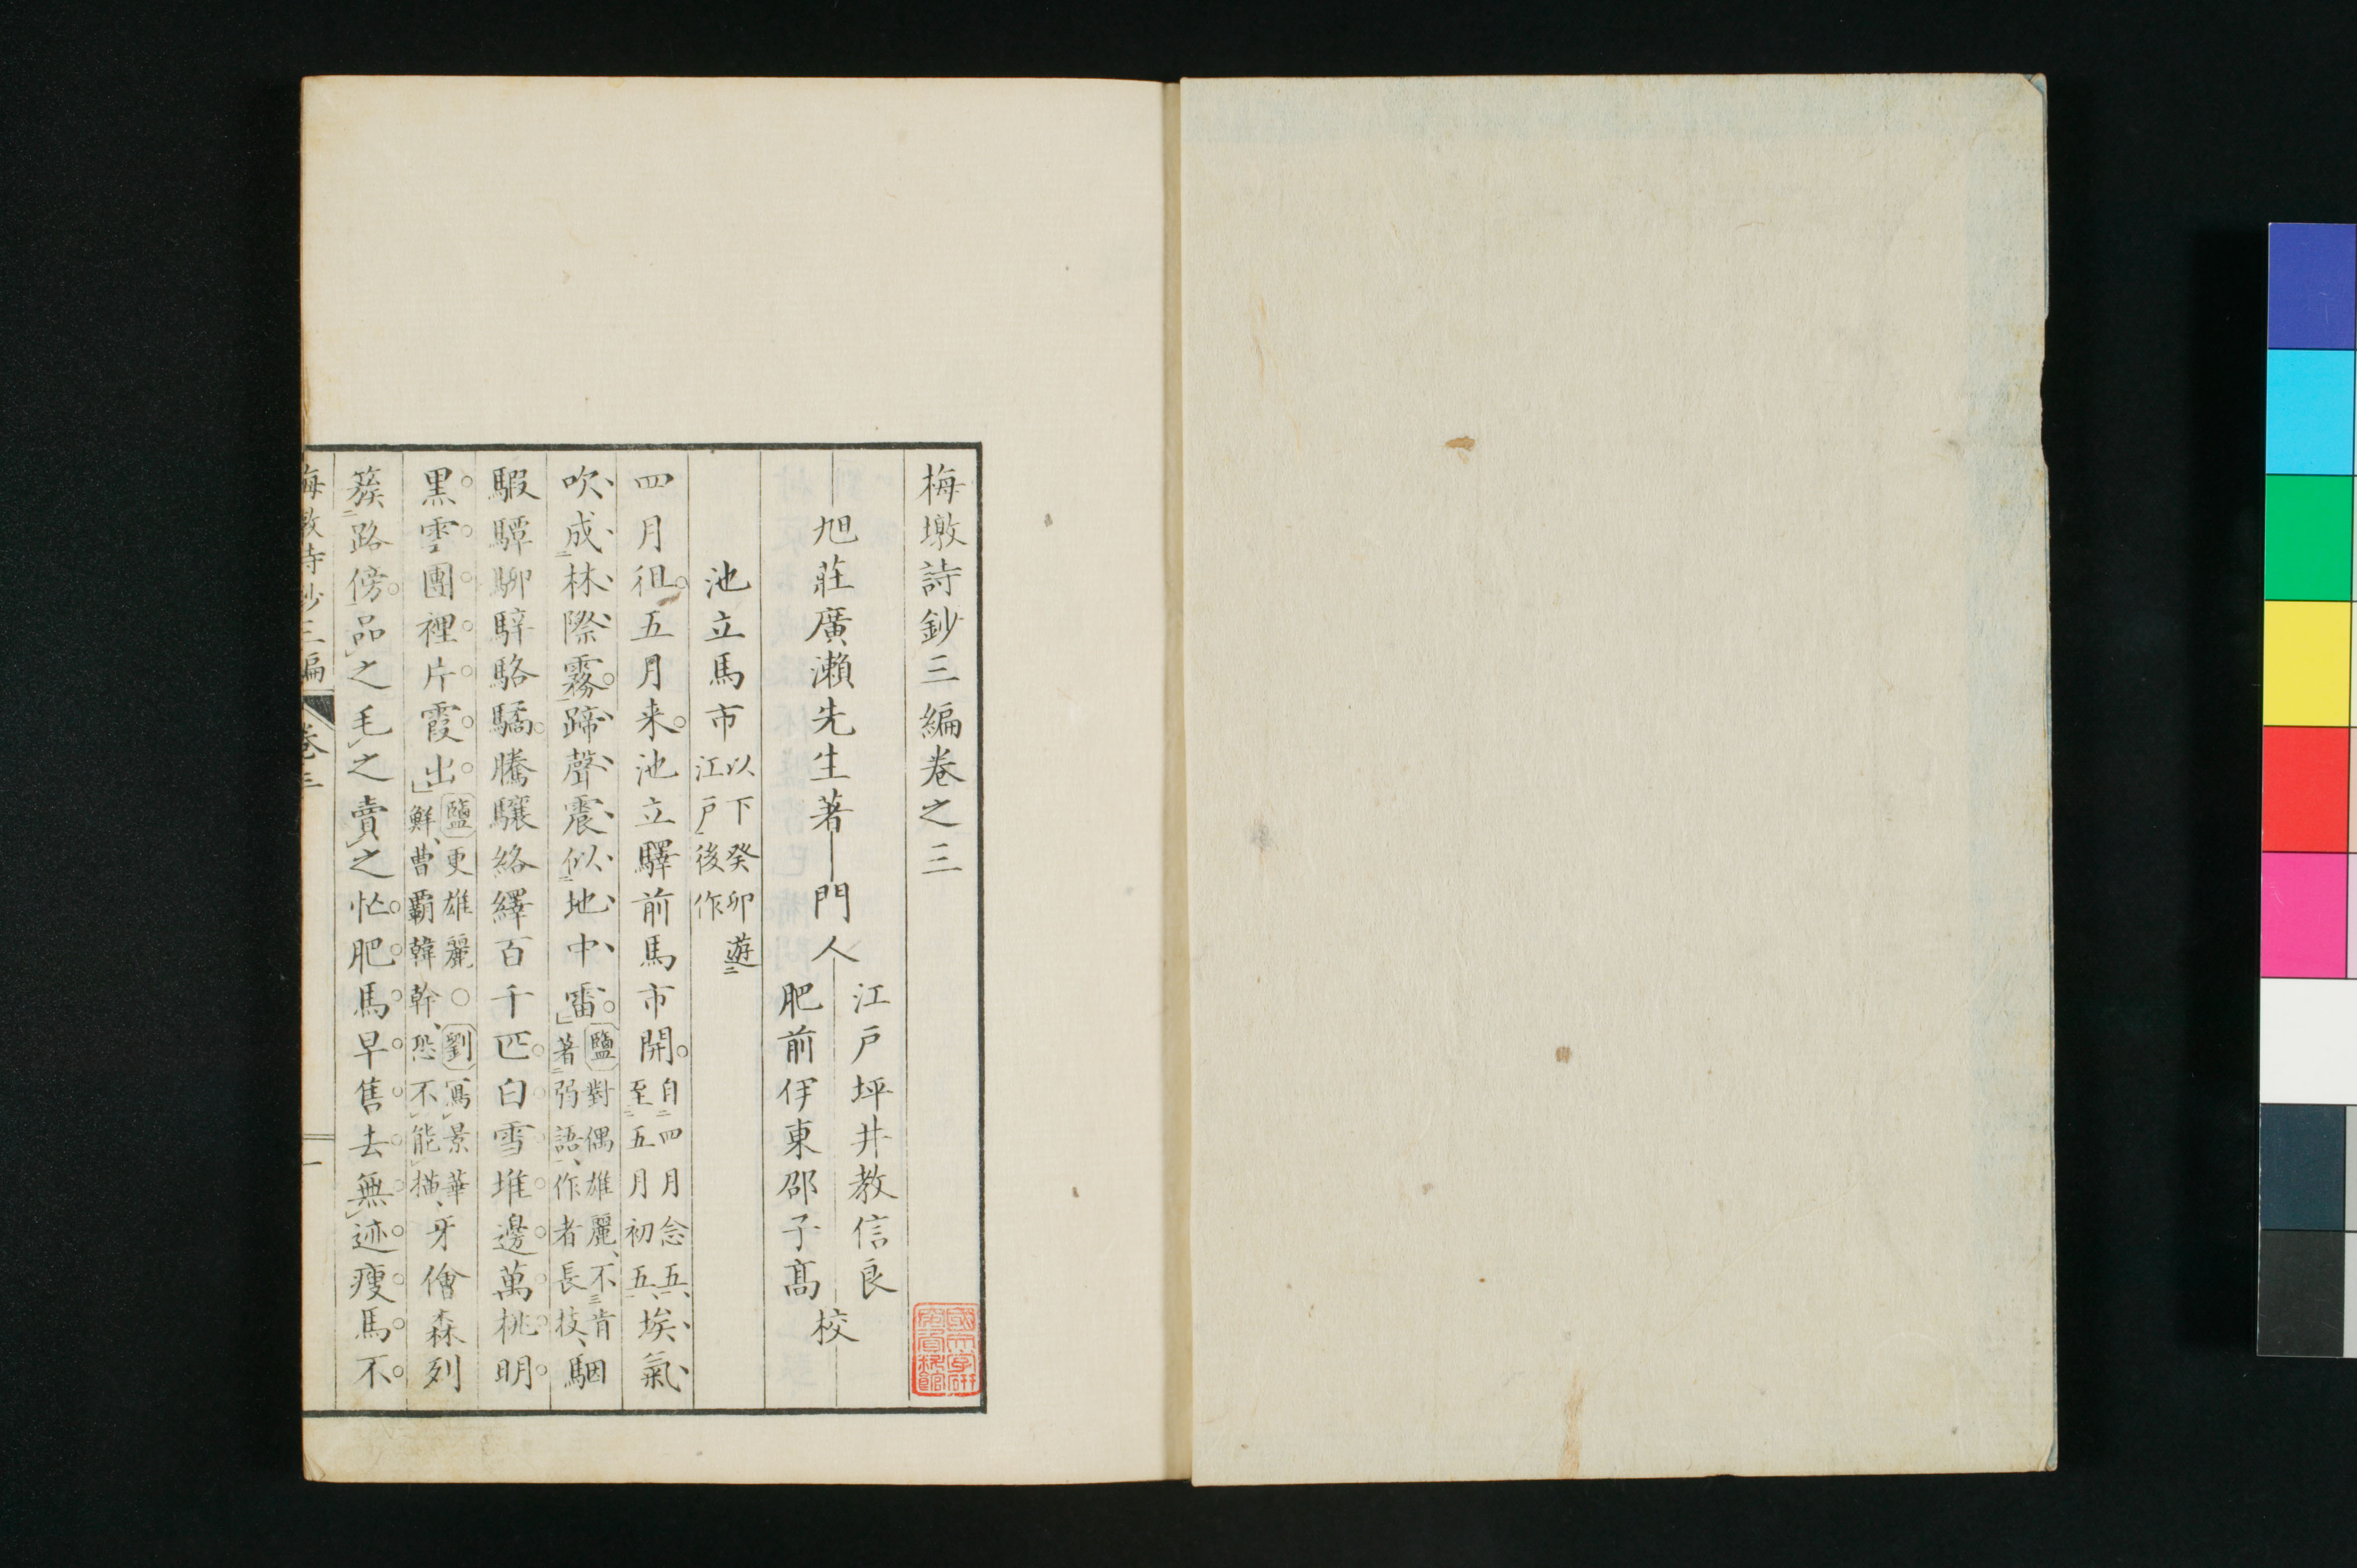 梅墩詩鈔三編卷之三
旭莊廣瀨先生著
門人
江戸坪井教信良
肥前伊東邵子髙
校
池立馬市
以下癸卯遊
江戸後作
四月徂五月来池立驛前馬市開
自四月念五
至五月初五
埃氣
吹成林際霧蹄聲震似地中雷
鹽對偶雄麗不肯
著弱語作者長技
駰
騢驔駵騂駱驕騰驤絡繹百千匹白雪堆邊萬桃明
黒雲團裡片霞出
鹽更雄麗○劉寫景華
鮮曹霸韓幹恐不能描
牙儈森列
簇路傍品之毛之賣之忙肥馬早售去無迹瘦馬不
梅墩詩鈔三編
卷三
一